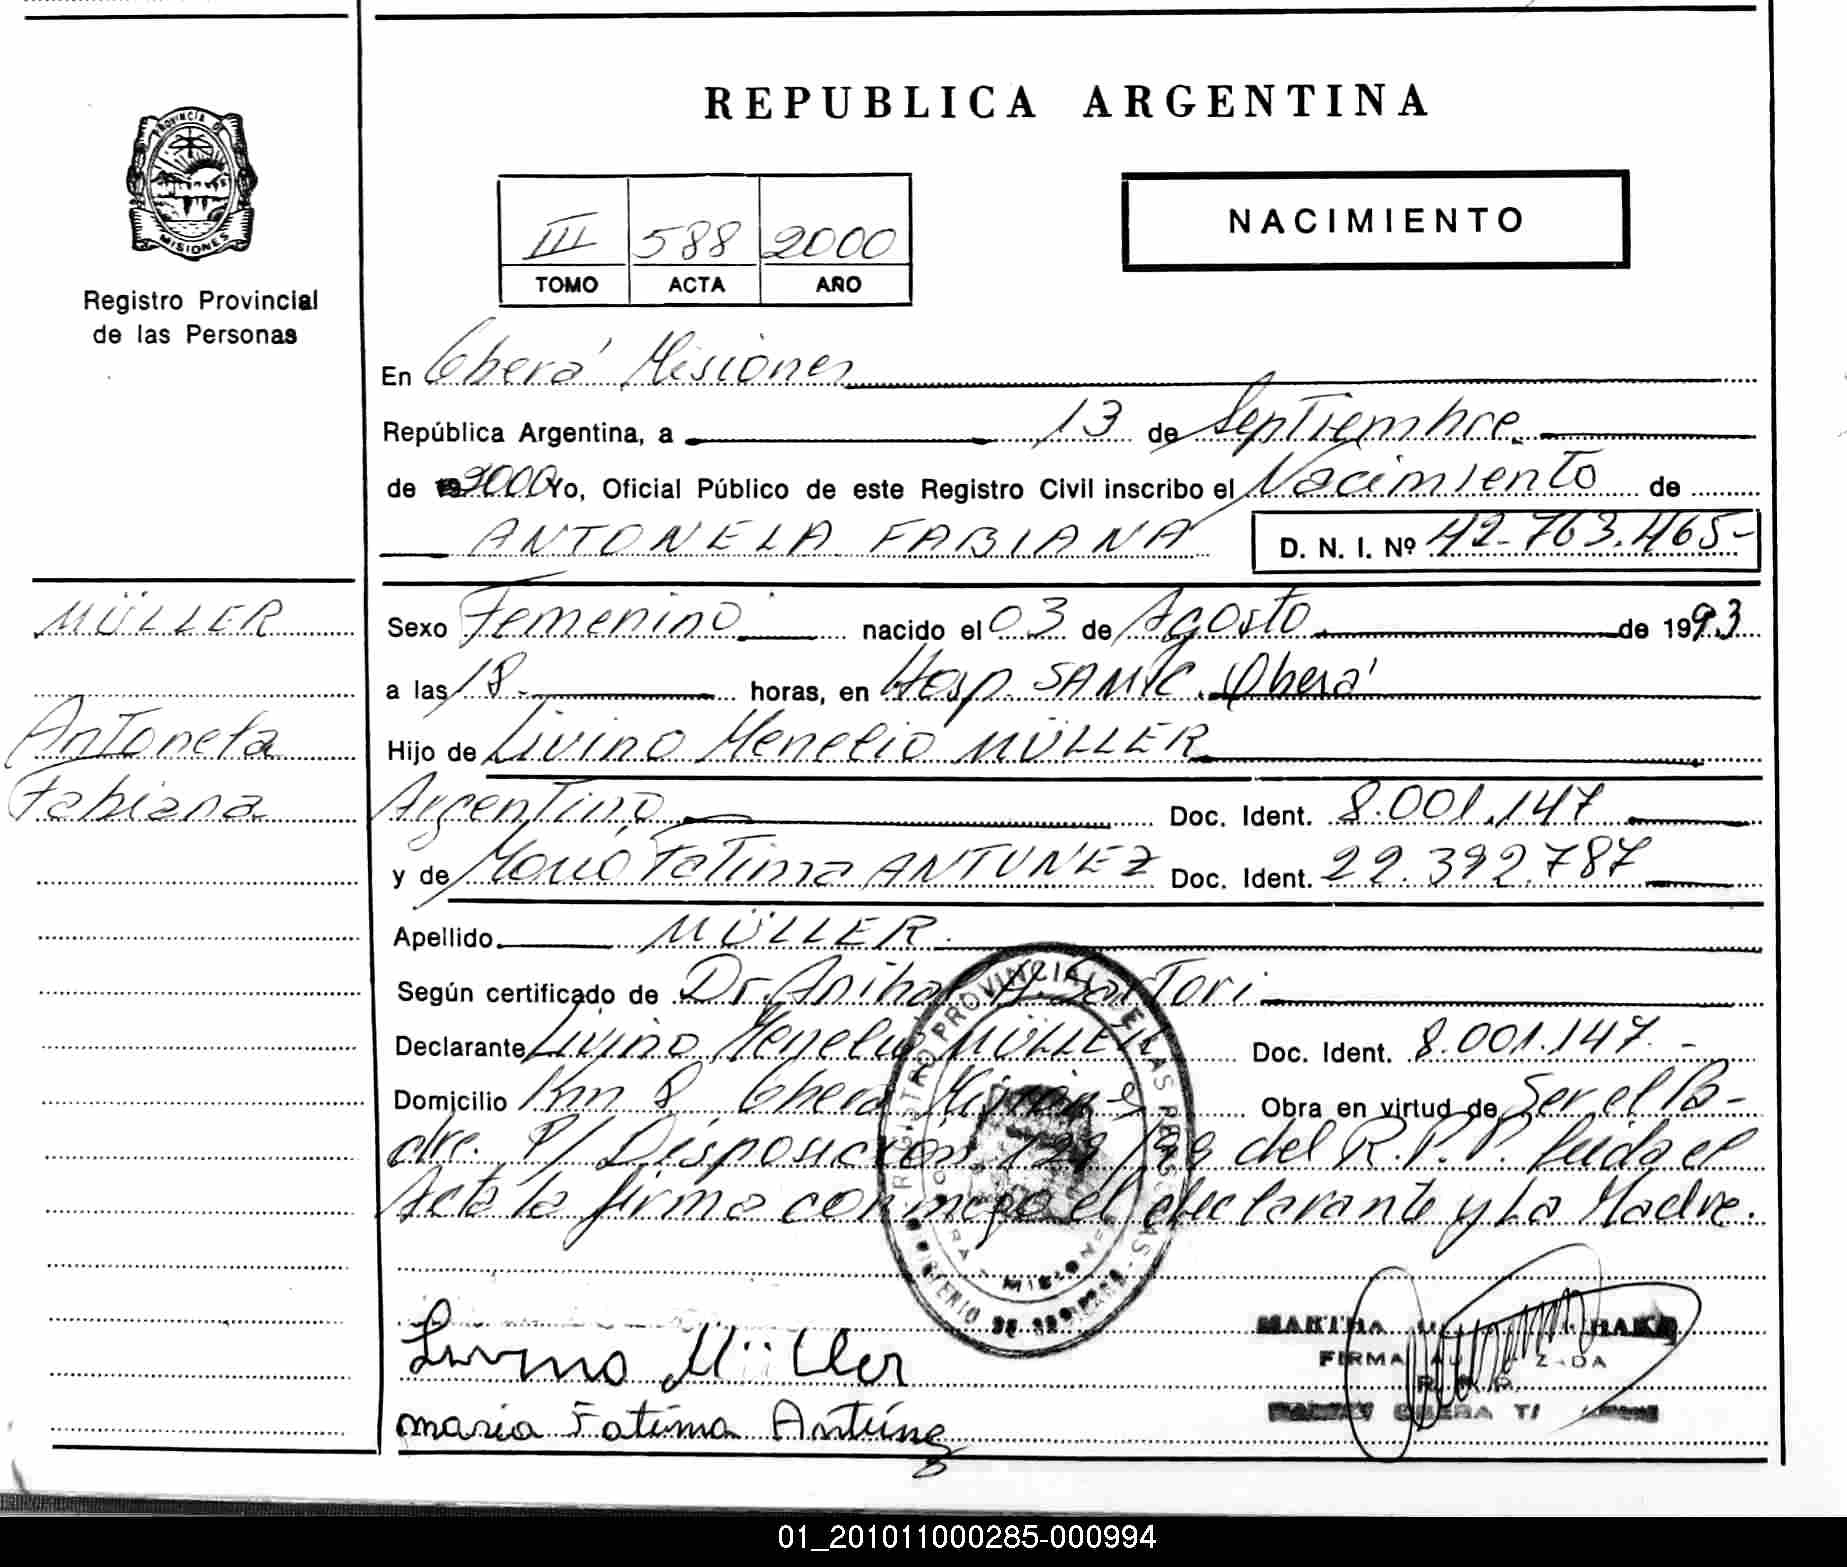 REPUBLICA ARGENTINA
PROVINCIA DE
MISIONES
Registro Provincial
de las Personas
III 588 2000
TOMO ACTA AÑO
NACIMIENTO
En Oberá Misiones
República Argentina, a 13 de Septiembre
de 2000 Yo, Oficial Público de este Registro Civil inscribo el Nacimiento de
ANTONELA FABIANA D. N. I. Nº 42.763.465-
MÜLLER
Antonela
Fabiana
Sexo Femenino nacido el 03 de Agosto de 1993
a las 18 horas, en Hosp. SAMIC. Oberá
Hijo de Livino Menelio MÜLLER
Argentino Doc. Ident. 8.001.147
y de María Fatima ANTUNEZ Doc. Ident. 22.392.787
Apellido MÜLLER
Según certificado de Dr. Anibal A. Sartori
Declarante Livino Menelio MÜLLER Doc. Ident. 8.001.147.-
Domicilio Km 8 Oberá Misiones Obra en virtud de Ser el Pa-
dre. P/ Disposición /99 del R.P.P. leída el
Acta la firma conmigo el declarante y La Madre.
REGISTRO PROVINCIAL DE LAS PERSONAS
MISIONES
MINISTERIO DE
Livino Müller
maria Fatima Antúnez
MARTHA
FIRMA AUTORIZADA
OBERA
01_201011000285-000994